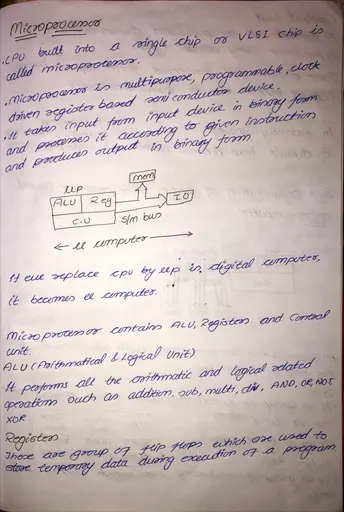 Microprocessor
. CPU built into a single chip or VLSI chip is
called microprocessor.
. Microprocessor is multipurpose, programmable, clock
driven register based semi conductor device.
. It takes input from input device in binary form
and processes it according to given instruction
and produces output in binary form
μp
mem
ALU Reg
IO
C.U
S/m bus
← μ computer →
If we replace cpu by μp in digital computer,
it becomes μ computer.
Microprocessor contains ALU, Registers and Control
unit.
ALU (Arithmatical & Logical Unit)
It performs all the arithmatic and logical related
operations such as addition, sub, multi, div, AND, OR, NOT
XOR
Registers
These are group of flip flops which are used to
store temporary data during execution of a program